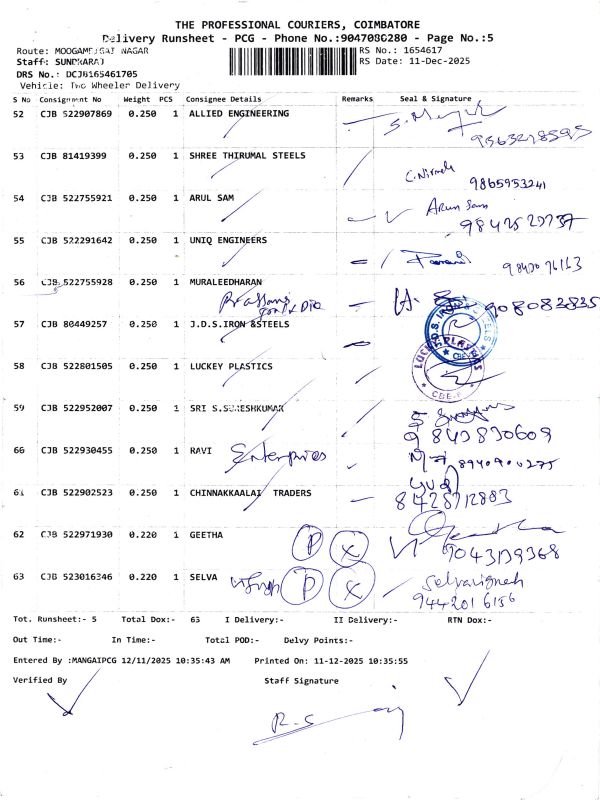 THE PROFESSIONAL COURIERS, COIMBATORE
Delivery Runsheet - PCG - Phone No.:9047086280 - Page No.:5
Route: MOOGAMBIGAI NAGAR
RS No.: 1654617
Staff: SUNDKARAJ
RS Date: 11-Dec-2025
DRS No.: DCJB165461705
Vehicle: Two Wheeler Delivery
S No Consignment No Weight PCS Consignee Details Remarks Seal & Signature
52 CJB 522907869 0.250 1 ALLIED ENGINEERING
53 CJB 81419399 0.250 1 SHREE THIRUMAL STEELS
C. Nirmala 9865953241
54 CJB 522755921 0.250 1 ARUL SAM
Arun Sam
55 CJB 522291642 0.250 1 UNIQ ENGINEERS
56 CJB 522755928 0.250 1 MURALEEDHARAN
908083835
57 CJB 80449257 0.250 1 J.D.S.IRON &STEELS
58 CJB 522801505 0.250 1 LUCKEY PLASTICS
59 CJB 522952007 0.250 1 SRI S.SURESHKUMAR
9843830609
66 CJB 522930455 0.250 1 RAVI Enterprises
8940900275
61 CJB 522902523 0.250 1 CHINNAKKAALAI TRADERS
8428712883
62 CJB 522971930 0.220 1 GEETHA P X
9043139368
63 CJB 523016346 0.220 1 SELVA P X
Selvavignesh
9442016156
Tot. Runsheet:- 5 Total Dox:- 63 I Delivery:- II Delivery:- RTN Dox:-
Out Time:- In Time:- Total POD:- Delvy Points:-
Entered By :MANGAIPCG 12/11/2025 10:35:43 AM Printed On: 11-12-2025 10:35:55
Verified By Staff Signature